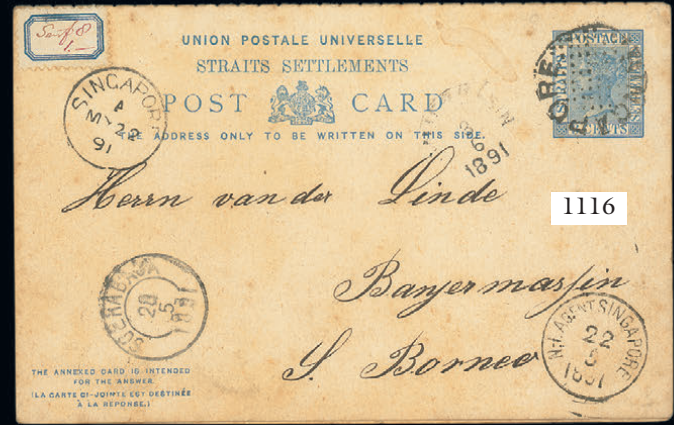 UNION POSTALE UNIVERSELLE
STRAITS SETTLEMENTS
POST CARD
THE ADDRESS ONLY TO BE WRITTEN ON THIS SIDE.
STRAITS POSTAGE SETTLEMENTS
CENTS
SINGAPORE
A
MY 22
91
6
1891
Herrn van der Linde
1116
Banjermassin
S. Borneo
SOERABAJA
20
5
1891
N.I. AGENT SINGAPORE
22
5
1891
THE ANNEXED CARD IS INTENDED
FOR THE ANSWER.
(LA CARTE CI-JOINTE EST DESTINÉE
À LA RÉPONSE.)